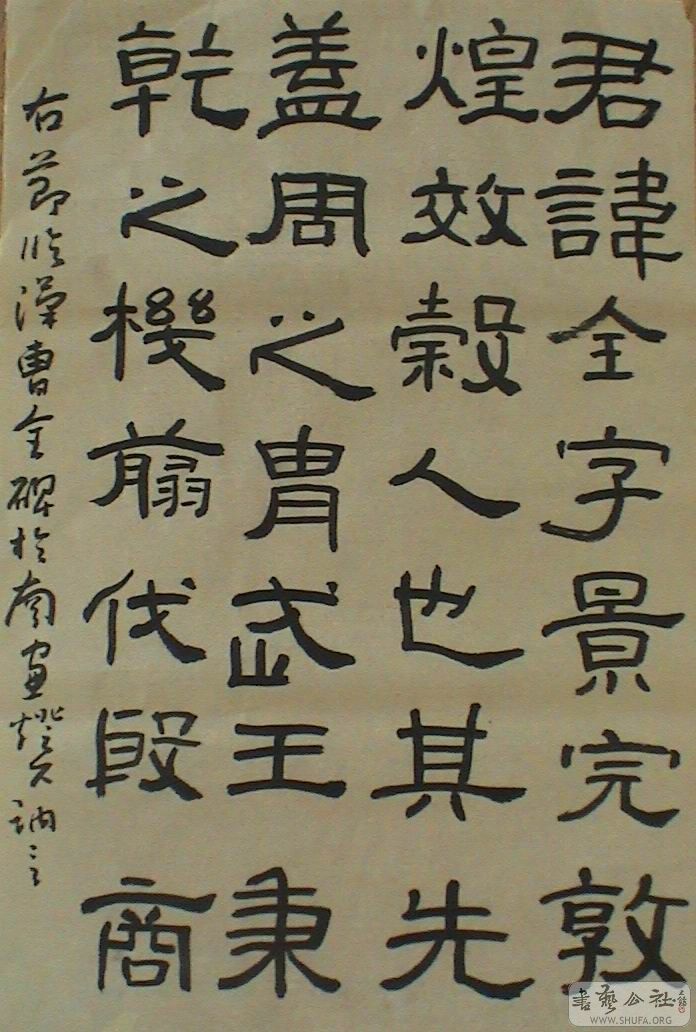 君諱全字景完敦
煌效穀人也其先
蓋周之胄武王秉
乾之機翦伐殷商
右節臨漢曹全碑於南窗燈下訥言
書藝公社
WWW.SHUFA.ORG